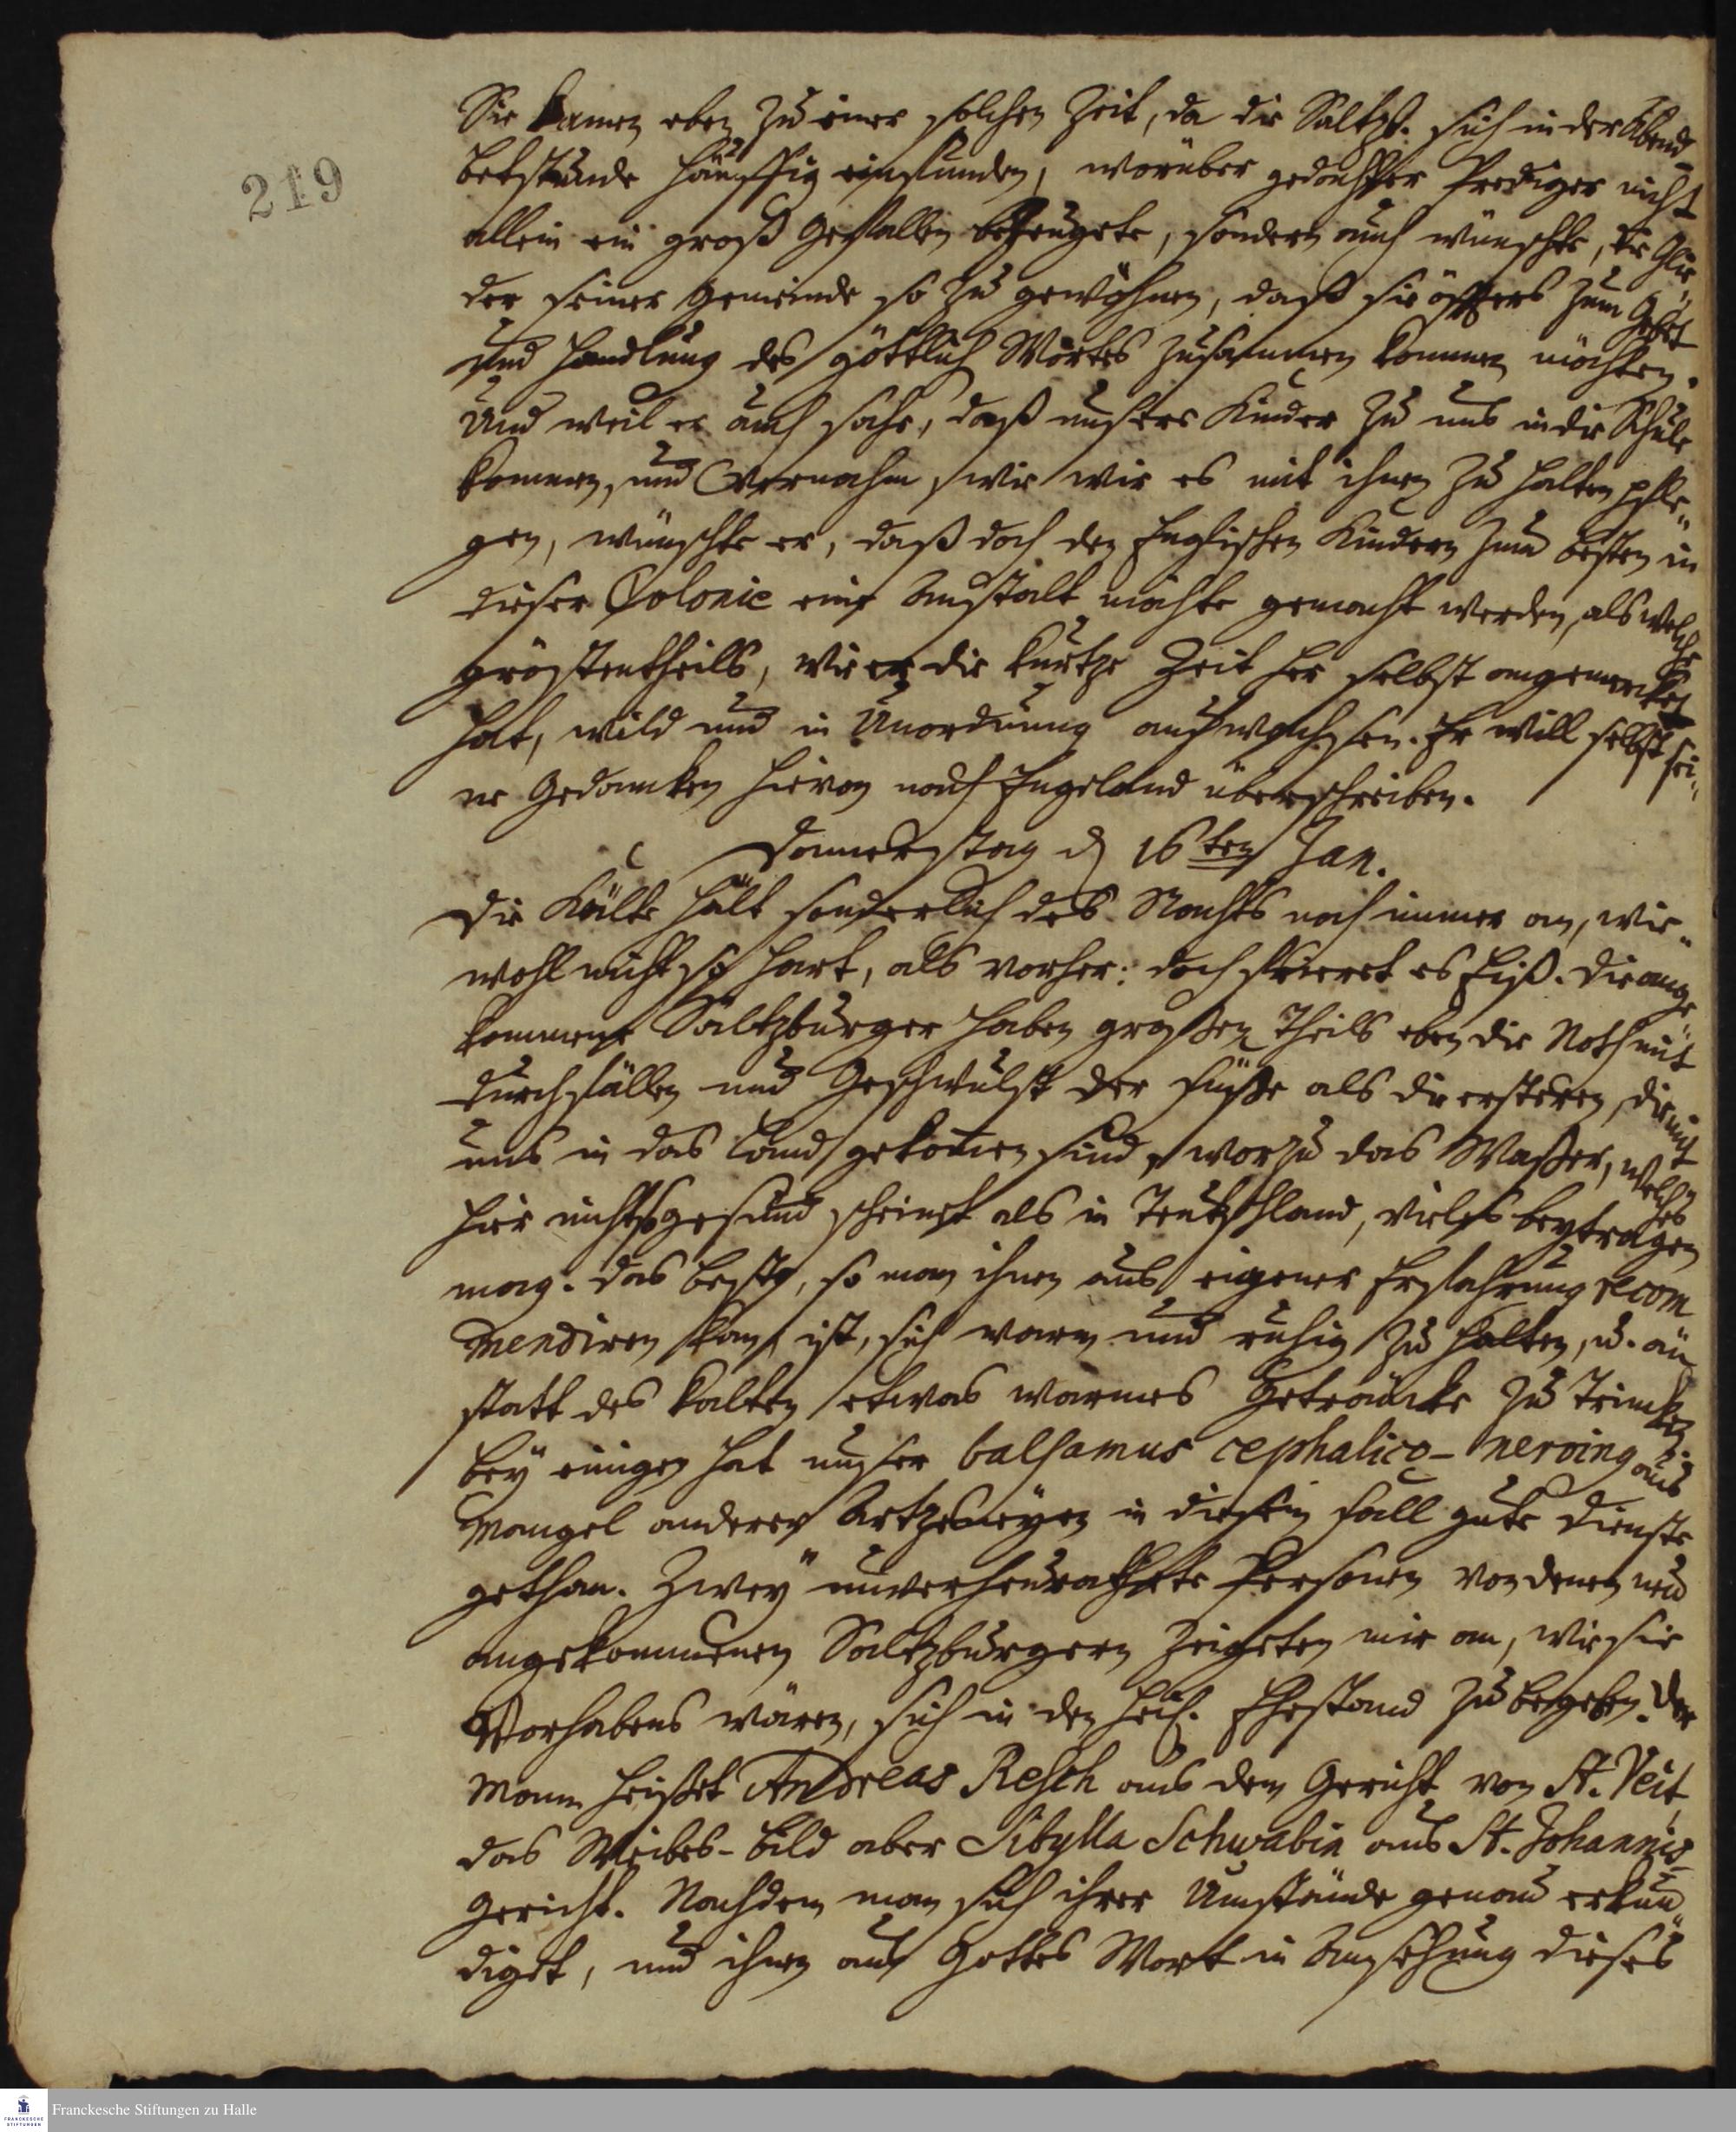 219
Sie kamen eben zu einer solchen Zeit, da die Saltzb. sich in der Abend-
betstunde häuffig einfunden, worüber gedachter Prediger nicht
allein ein groß Gefallen bezeugete, sondern auch wünschte, die Glie-
der seiner Gemeinde so zu gewöhnen, daß sie öffters zum Gebet
und Handlung des göttlich Wortes zusammen kommen möchten.
Und weil er auch sahe, daß unsere Kinder zu uns in die Schule
kommen, und vernahm, wie wir es mit ihnen zu halten pfle-
gen, wünschte er, daß doch den Englischen Kindern zum besten in
dieser Colonie eine Anstalt möchte gemacht werden, als welche
gröstentheils, wie er die kurtze Zeit her selbst angemercket
hat, wild und in Unordnung aufwachsen. Er will selbst sei-
ne Gedancken hievon nach Engeland überschreiben.
Donnerstag d 16ten Jan.
Die Kälte hält sonderlich des Nachts noch immer an, wie-
wohl nicht so hart, als vorher: doch frieret es Eiß. Die ange-
kommene Saltzburger haben großen Theils eben die Noth mit
Durchfällen und Geschwulst der Füße als die ersteren, die mit
uns in das Land gekomen sind, worzu das Waßer, welches
hier nicht so gesund scheinet als in Teutschland, vieles beytragen
mag. Das beste, so man ihnen aus eigener Erfahrung recom
mendiren kan, ist, sich warm und ruhig zu halten, u. an
statt des kalten etwas warmes Geträncke zu trincken.
Bey einigen hat unser balsamus cephalico-nerving aus
Mangel anderer Artzeneyen in diesem Fall gute Dienste
gethan. Zwey unverheurathete Personen von denen neu
angekommenen Saltzburgern zeigeten mir an, wie sie
Vorhabens wären, sich in den heil. Ehestand zu begeben. Der
Mann heißet Andreas Resch aus dem Gericht von St. Veit,
das Weibes-Bild aber Sibylla Schwabin aus St. Johannis-
Gericht. Nachdem man sich ihrer Umstände genau erkun-
diget, und ihnen aus Gottes Wort in Ansehung dieses
Franckesche Stiftungen zu Halle
FRANCKESCHE
STIFTUNGEN